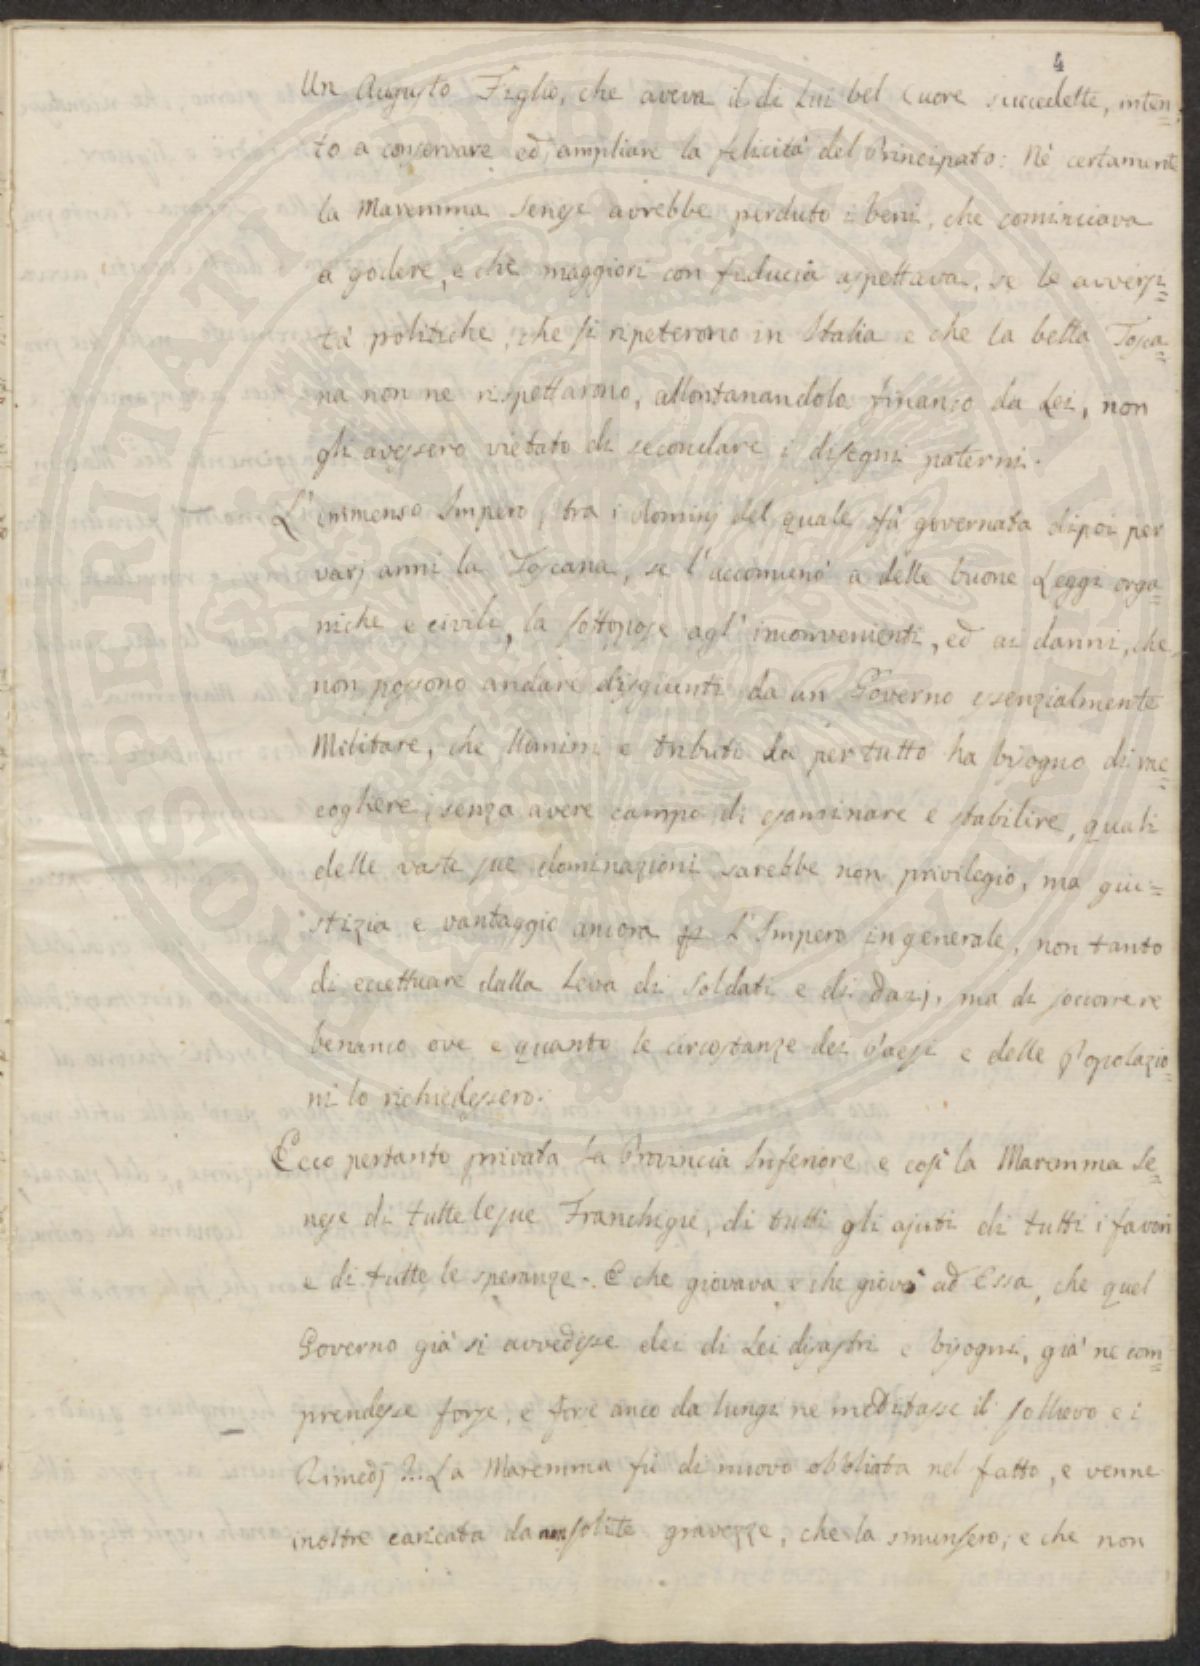 4
Un Augusto Figlio, che aveva il di Lui bel Cuore succedette, inten=
to a conservare ed ampliare la felicità del Principato: Nè certamente
la Maremma Senese avrebbe perduto i beni, che cominciava
a godere, e che maggiori con fiducia aspettava, se le avversi=
tà politiche, che si ripeterono in Italia e che la bella Tosca=
na non ne rispettarono, allontanandolo financo da Lei, non
gli avessero vietato di secondare i disegni paterni.
L'immenso Impero, tra i dominj del quale fù governata dipoi per
varj anni la Toscana, se l'accomunò a delle buone Leggi orga=
niche e civili, la sottopose agl' inconvenienti, ed ai danni, che
non possono andare disgiunti da un Governo essenzialmente
Militare, che Uomini e tributi da per tutto ha bisogno di rac=
cogliere, senza avere campo di esaminare e stabilire, quali
delle vaste sue dominazioni sarebbe non privilegio, ma giu=
stizia e vantaggio ancora p L'Impero in generale, non tanto
di eccettuare dalla Leva di Soldati e di Dazj, ma di soccorrere
benanco ove e quanto le circostanze dei Paesi e delle Popolazio=
ni lo richiedessero.
Ecco pertanto privata La Provincia Inferiore e così la Maremma Se=
nese di tutte le sue Franchigie, di tutti gli ajuti di tutti i favori
e di tutte le speranze. E che giovava e che giovò ad Essa, che quel
Governo già si avvedesse dei di Lei disastri e bisogni, già ne com=
prendesse forse, e forse anco da lungi ne meditasse il sollievo e i
Rimedj?... La Maremma fù di nuovo obbliata nel fatto, e venne
inoltre caricata da insolite gravezze, che la smunsero; e che non
PROSPERITATI PUBLICAE